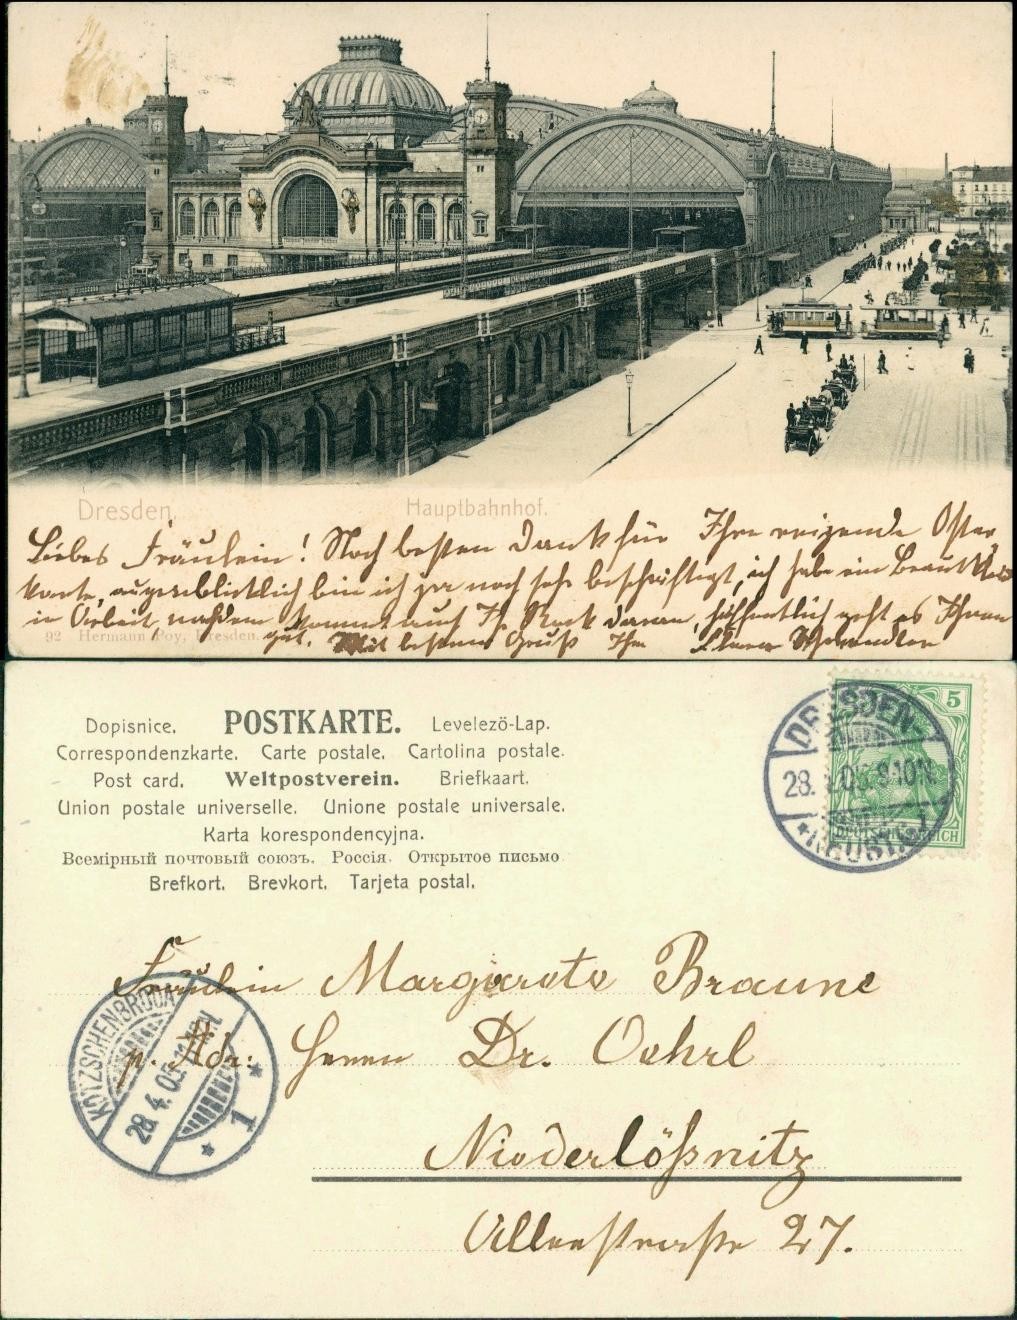 Dresden.
Hauptbahnhof.
Liebes Fräulein! Noch besten Dank für Ihre reizende Oster
karte, augenblicklich bin ich ja noch sehr beschäftigt, ich habe ein Brautkleid
in Arbeit, nachdem kommt auch Ih. Rock daran, hoffentlich geht es Ihnen
92 Hermann Poy, Dresden.
gut. Mit bestem Gruß Ihre
Dopisnice. POSTKARTE. Levelezö-Lap.
Correspondenzkarte. Carte postale. Cartolina postale.
Post card. Weltpostverein. Briefkaart.
Union postale universelle. Unione postale universale.
Karta korespondencyjna.
Всемірный почтовый союзъ. Россія. Открытое письмо
Brefkort. Brevkort. Tarjeta postal.
5
DEUTSCHES REICH
DRESDEN-
28. 05. 9-10N.
NEUST.
1
Fräulein Margarete Braune
p. Adr: Herrn Dr. Oehrl
Niederlößnitz
Villenstraße 27.
KÖTZSCHENBRODA
28.4.05.
1